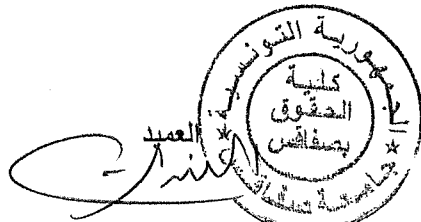 الجمهورية التونسية
كلية
الحقوق
بصفاقس
جامعة صفاقس
العميد